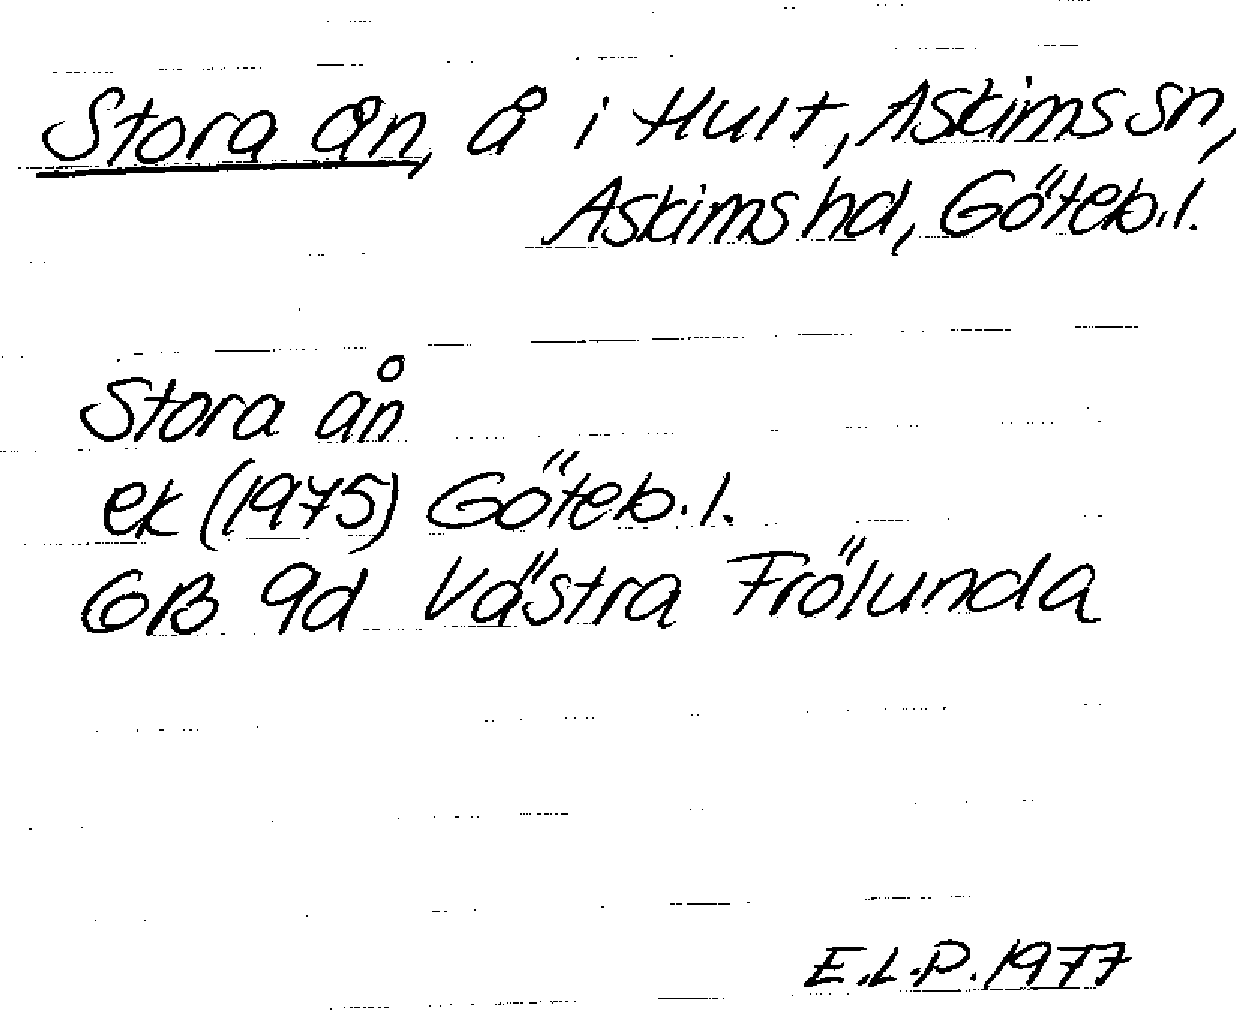 Stora ån, å i Hult, Askims sn,
Askims hd, Göteb.l.
Stora ån
ek (1975) Göteb.l.
GB 9d Västra Frölunda
E.L.P. 1977